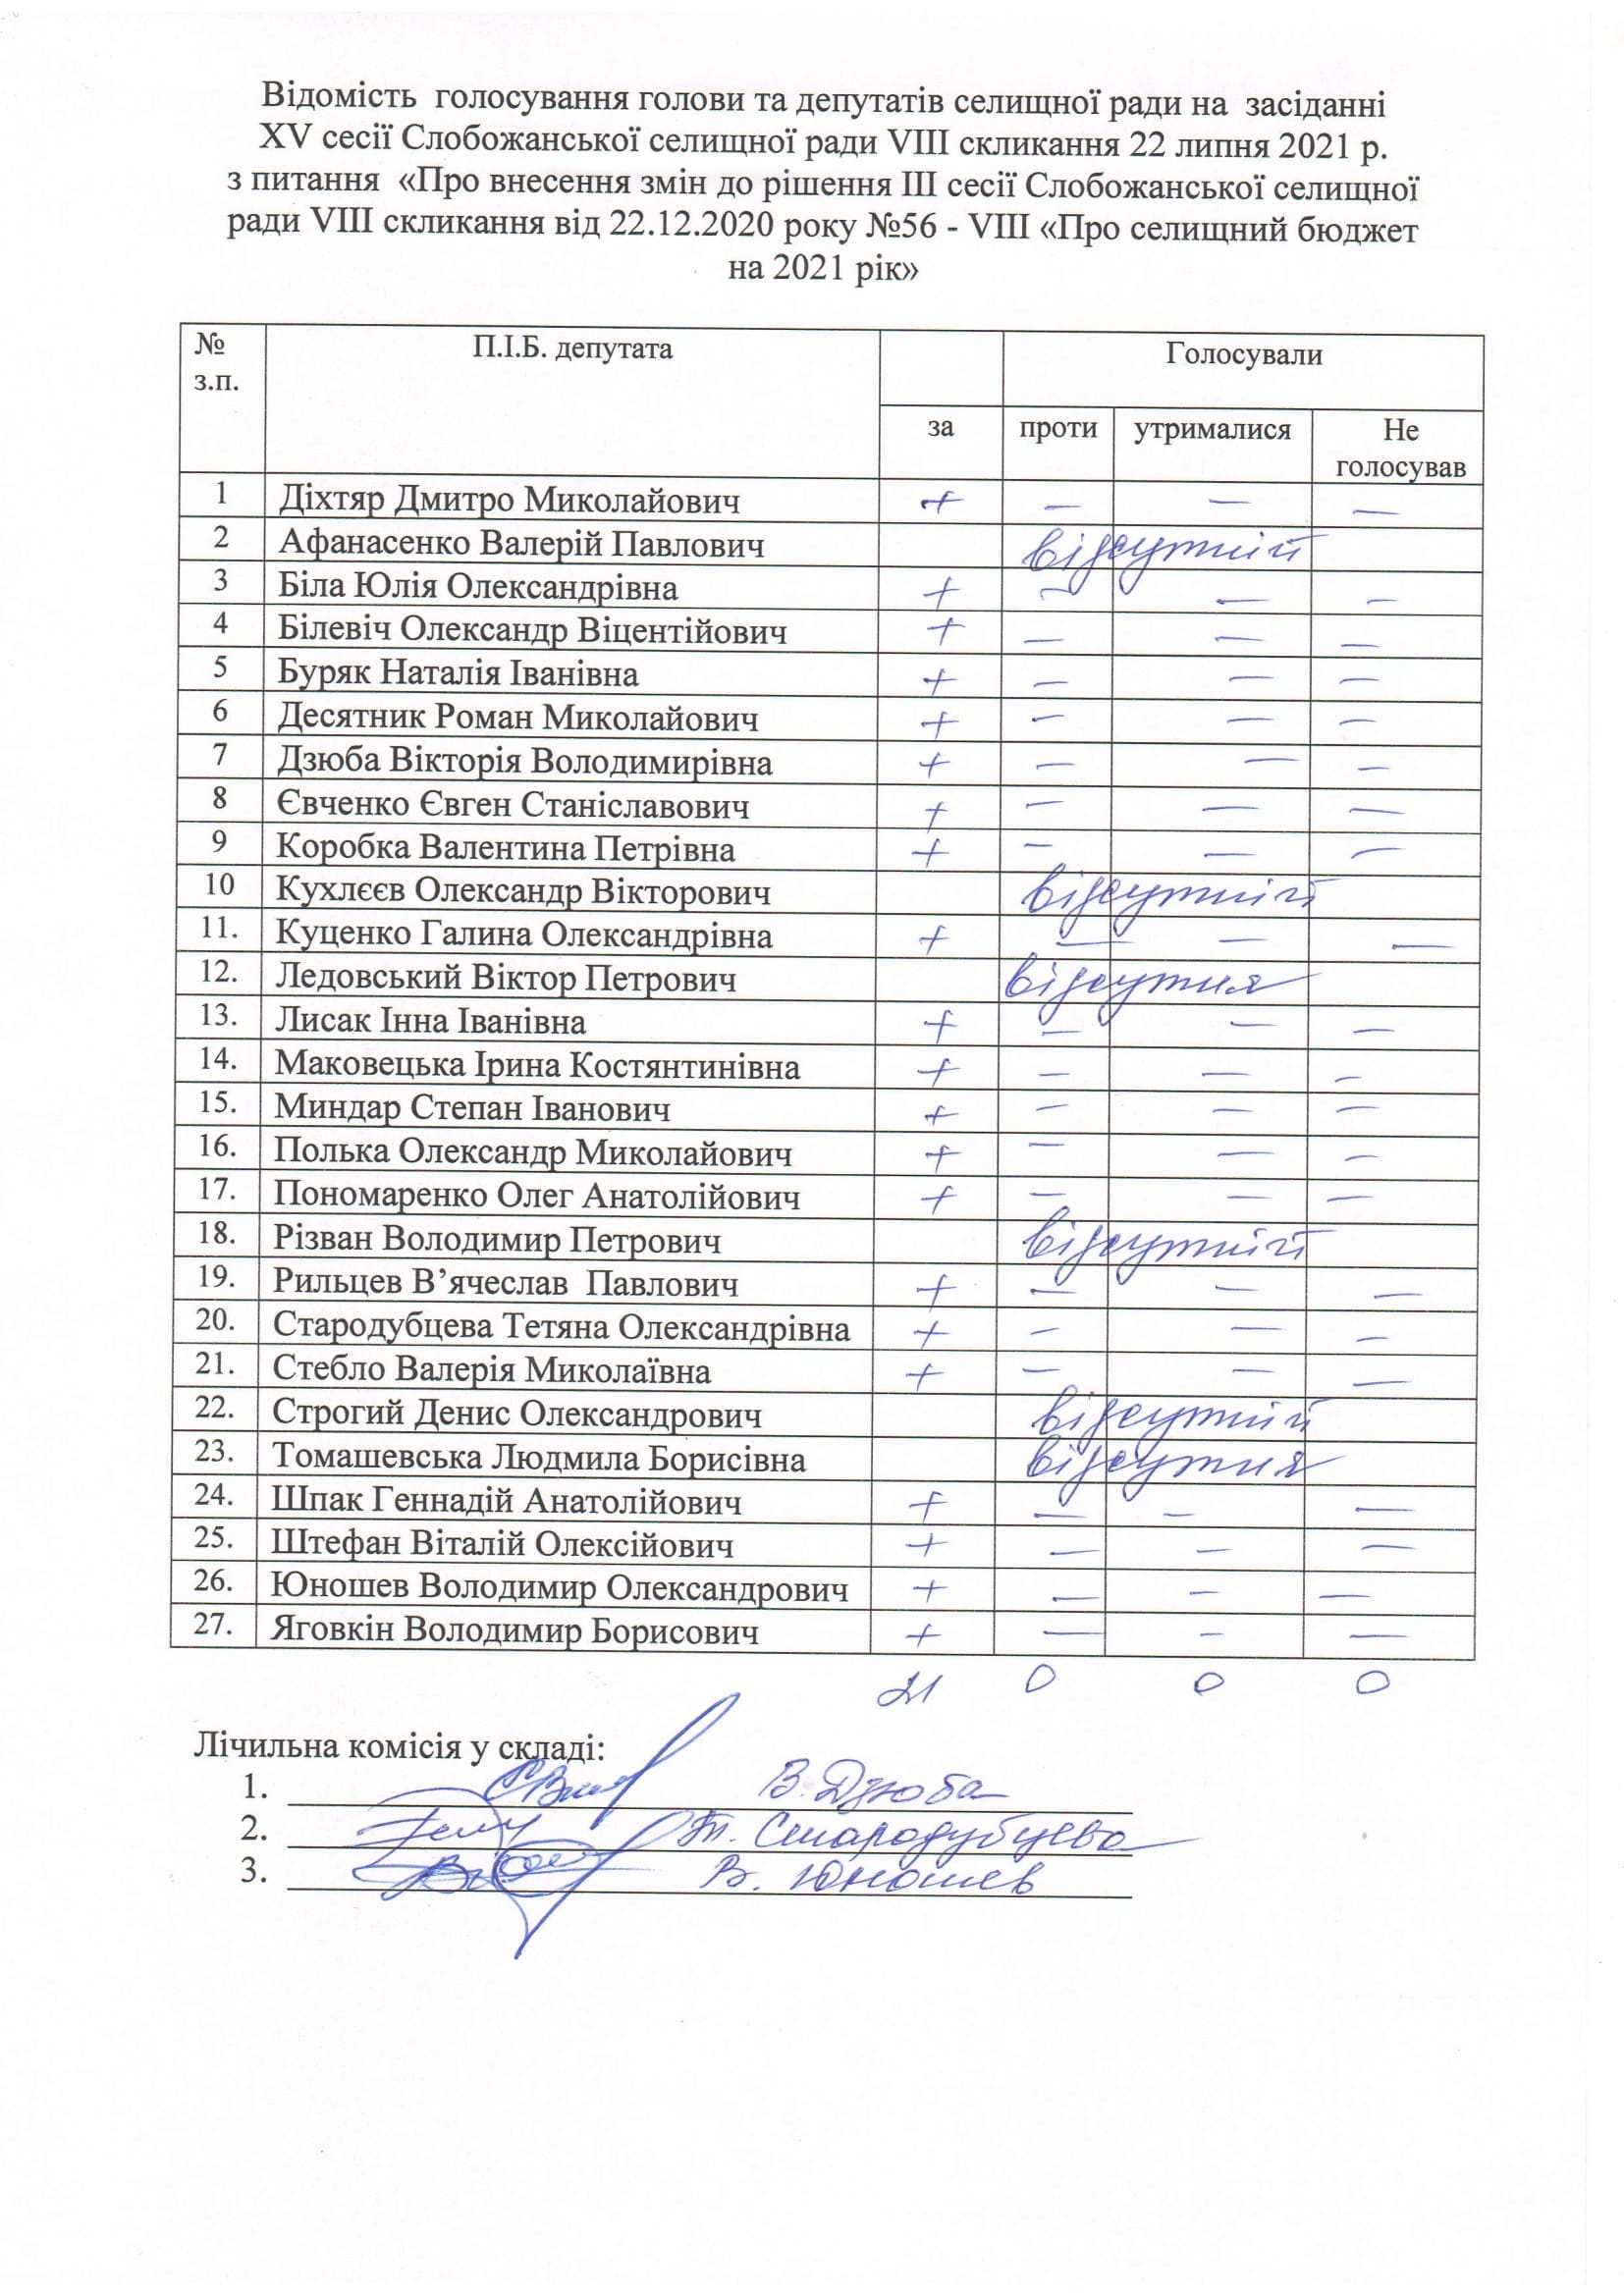 Відомість голосування голови та депутатів селищної ради на засіданні
XV сесії Слобожанської селищної ради VIII скликання 22 липня 2021 р.
з питання «Про внесення змін до рішення III сесії Слобожанської селищної
ради VIII скликання від 22.12.2020 року №56 - VIII «Про селищний бюджет
на 2021 рік»
№ П.І.Б. депутата Голосували
з.п.
за проти утрималися Не
голосував
1 Діхтяр Дмитро Миколайович + — — —
2 Афанасенко Валерій Павлович відсутній
3 Біла Юлія Олександрівна + — — —
4 Білевіч Олександр Віцентійович + — — —
5 Буряк Наталія Іванівна + — — —
6 Десятник Роман Миколайович + — — —
7 Дзюба Вікторія Володимирівна + — — —
8 Євченко Євген Станіславович + — — —
9 Коробка Валентина Петрівна + — — —
10 Кухлєєв Олександр Вікторович відсутній
11. Куценко Галина Олександрівна + — — —
12. Ледовський Віктор Петрович відсутня
13. Лисак Інна Іванівна + — — —
14. Маковецька Ірина Костянтинівна + — — —
15. Миндар Степан Іванович + — — —
16. Полька Олександр Миколайович + — — —
17. Пономаренко Олег Анатолійович + — — —
18. Різван Володимир Петрович відсутній
19. Рильцев В’ячеслав Павлович + — — —
20. Стародубцева Тетяна Олександрівна + — — —
21. Стебло Валерія Миколаївна + — — —
22. Строгий Денис Олександрович відсутній
23. Томашевська Людмила Борисівна відсутня
24. Шпак Геннадій Анатолійович + — — —
25. Штефан Віталій Олексійович + — — —
26. Юношев Володимир Олександрович + — — —
27. Яговкін Володимир Борисович + — — —
21 0 0 0
Лічильна комісія у складі:
1. В. Дзюба
2. Т. Стародубцева
3. В. Юношев